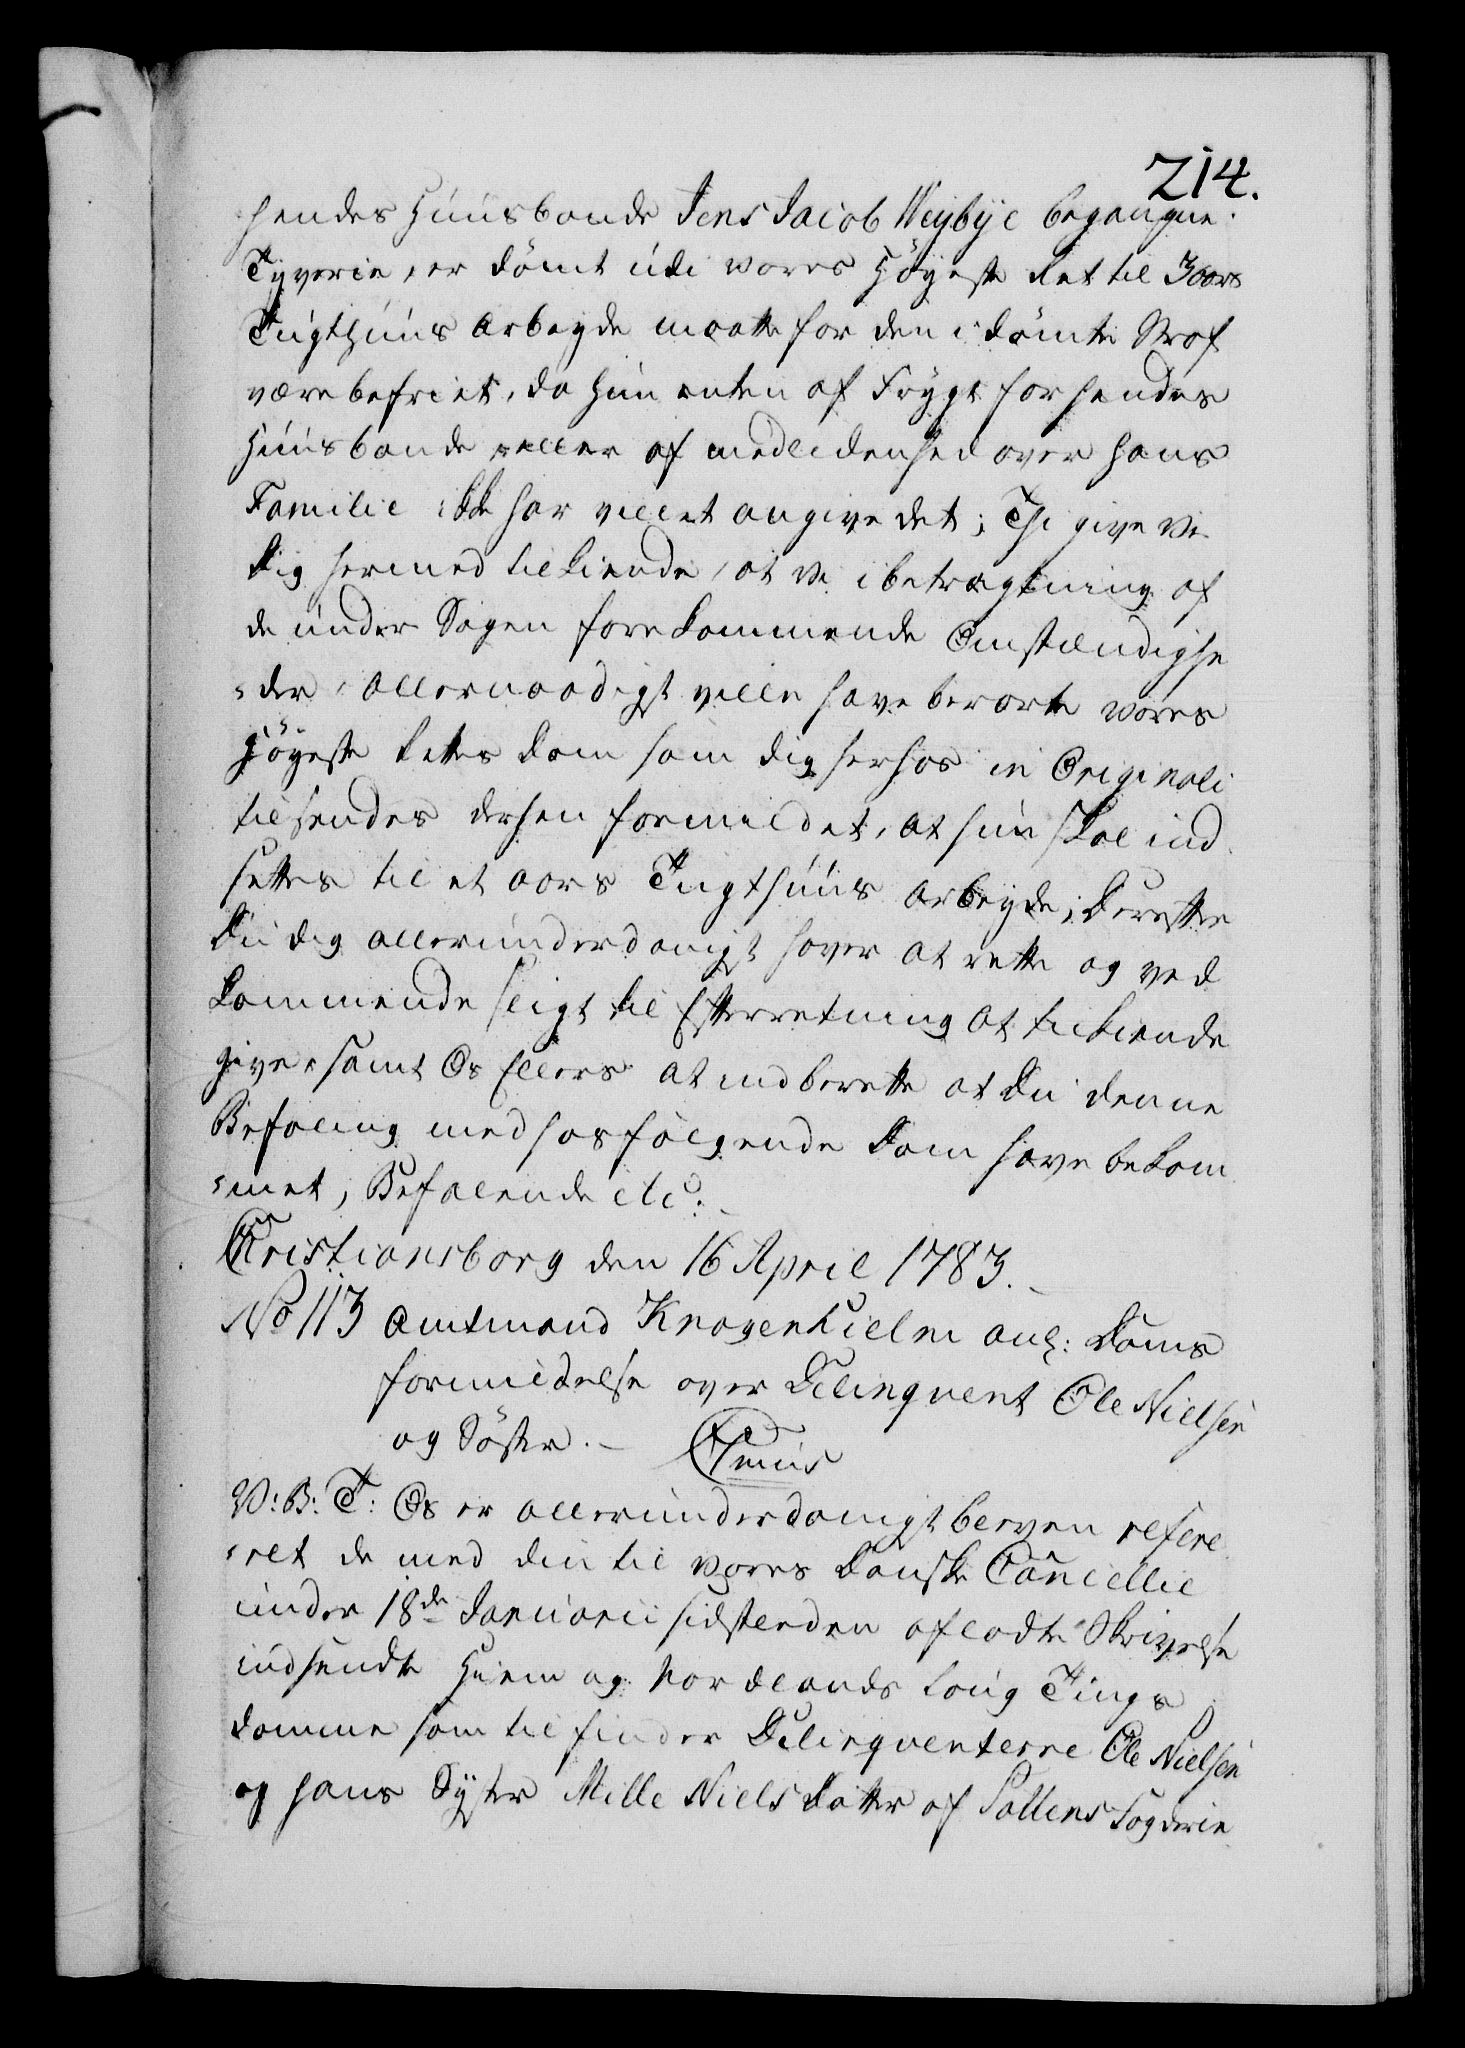 214.
hendes Huusbonde Jens Jacob Weybye begangne
Tyverie, er dömt udi vores Höyeste Ret til 3 aars
Tugthuus Arbeyde maatte for den idömte Straf
være befriet, da hun enten af Frygt for hendes
Huusbonde eller af medlidenhed over hans
Familie ikke har villet angive det; Thi give Vi
Dig hermed tilkiende, at Vi i betragtning af
de under Sagen forekommende Omstændighe
=der, allernaadigst ville have berørte vores
Höyeste Rettes Dom som dig herhos in Originali
tilsendes derhen formildet, at hun skal ind
settes til et aars Tugthuus Arbeyde; Derefter
Du dig allerunderdanigst haver at rette og ved
kommende sligt til Efterretning at tilkiende
give, samt Os Ellers at indberette at Du denne
Befaling med hosfølgende Dom have bekom
=met, Befalende etc:
Christiansborg den 16 April 1783.
No 113 Amtmand Knagenhielm anl: Doms
formildelse over Delinqvent Ole Nielsen
og Söster.
V: B: T: Os er allerunderdanigst bleven refere
=ret de med din til vores Danske Cancellie
under 18de Januarii sidstleden afladte Skrivelse
indsendte Hiem og Nordlands Laug Tings
Domme som tilfinder Delinqventerne Ole Nielsen
og hans Syster Mille Niels Datter af Saltens Fogderie